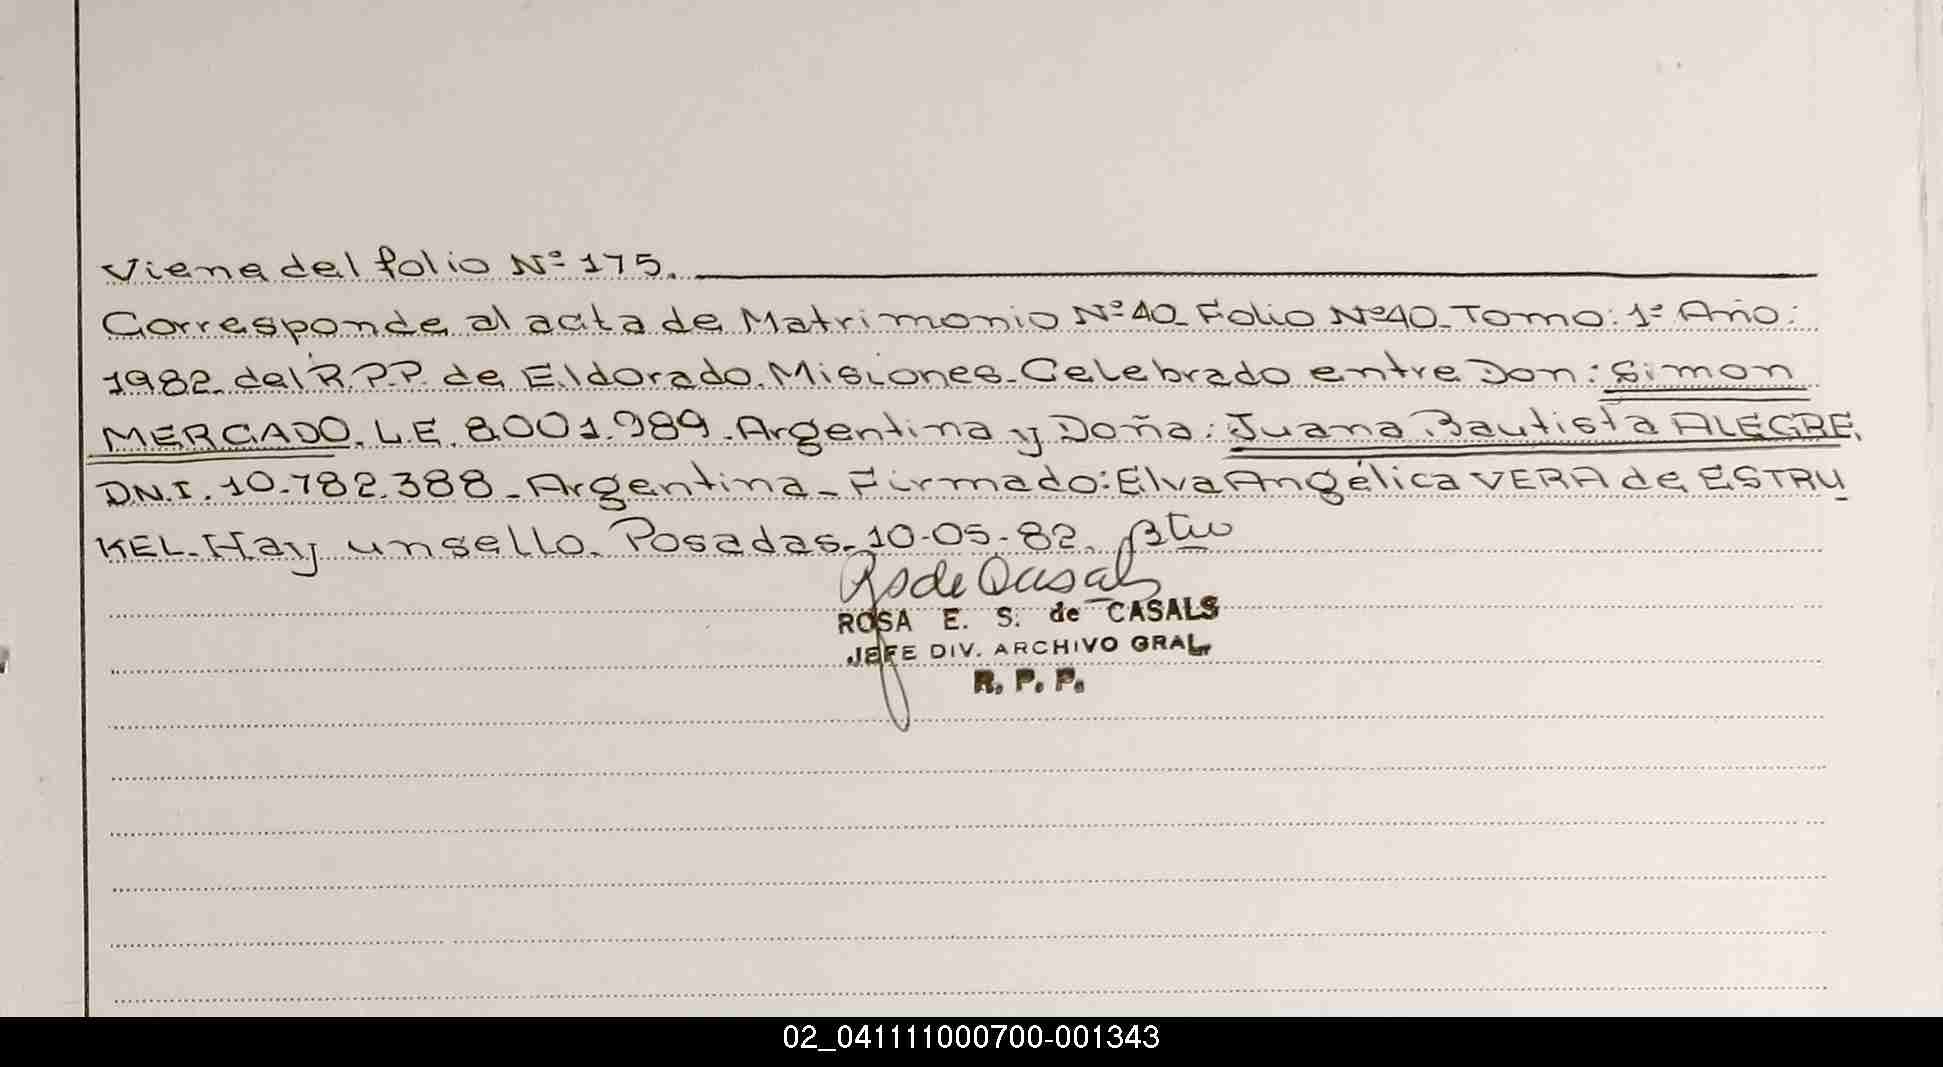 Viene del folio Nº 175.
Corresponde al acta de Matrimonio Nº 40. Folio Nº 40. Tomo: 1º Año:
1982. del R.P.P. de Eldorado. Misiones. Celebrado entre Don: Simon
MERCADO. L.E. 8.001.989. Argentina y Doña: Juana Bautista ALEGRE.
DN.I. 10.782.388. Argentina. Firmado: Elva Angélica VERA de ESTRU
KEL. Hay un sello. Posadas. 10-05-82.
ROSA E. S. de CASALS
JEFE DIV. ARCHIVO GRAL.
R. P. P.
02_041111000700-001343